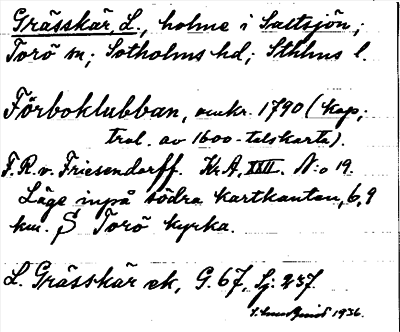 Grässkär, L., holme i Saltsjön;
Torö sn; Sotholms hd; Sthlms l.
Förboklubban, omkr. 1790 (kop;
trol. av 1600-talskarta).
F.R.v. Friesendorff. Kr.A, XXII. N:o 19.
Läge inpå södra kartkanten, 6,9
km. S Torö kyrka.
L. Grässkär ek, G. 67, Sj: 237.
1936.